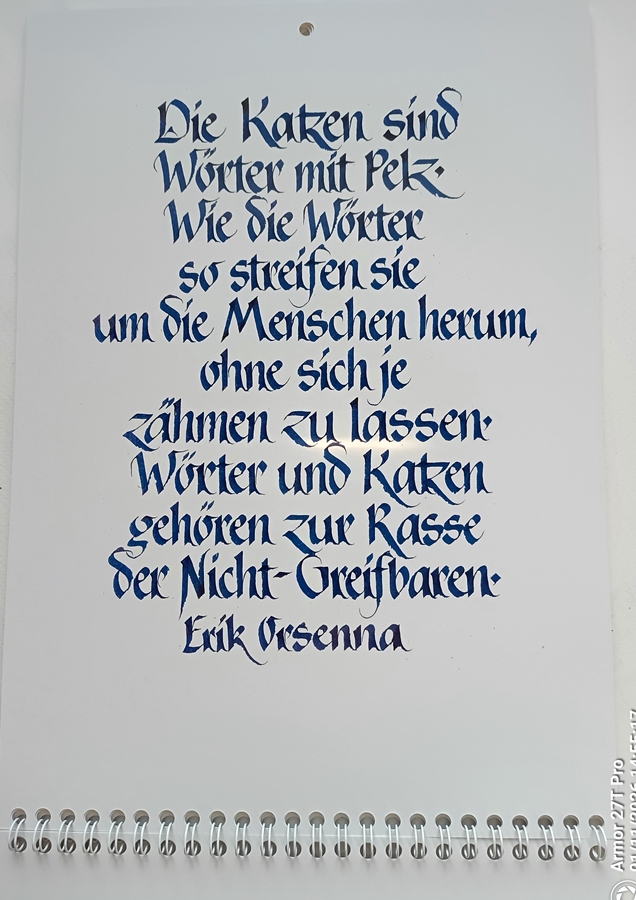 Die Katzen sind
Wörter mit Pelz.
Wie die Wörter
so streifen sie
um die Menschen herum,
ohne sich je
zähmen zu lassen.
Wörter und Katzen
gehören zur Rasse
der Nicht-Greifbaren.
Erik Orsenna
Armor 27T Pro